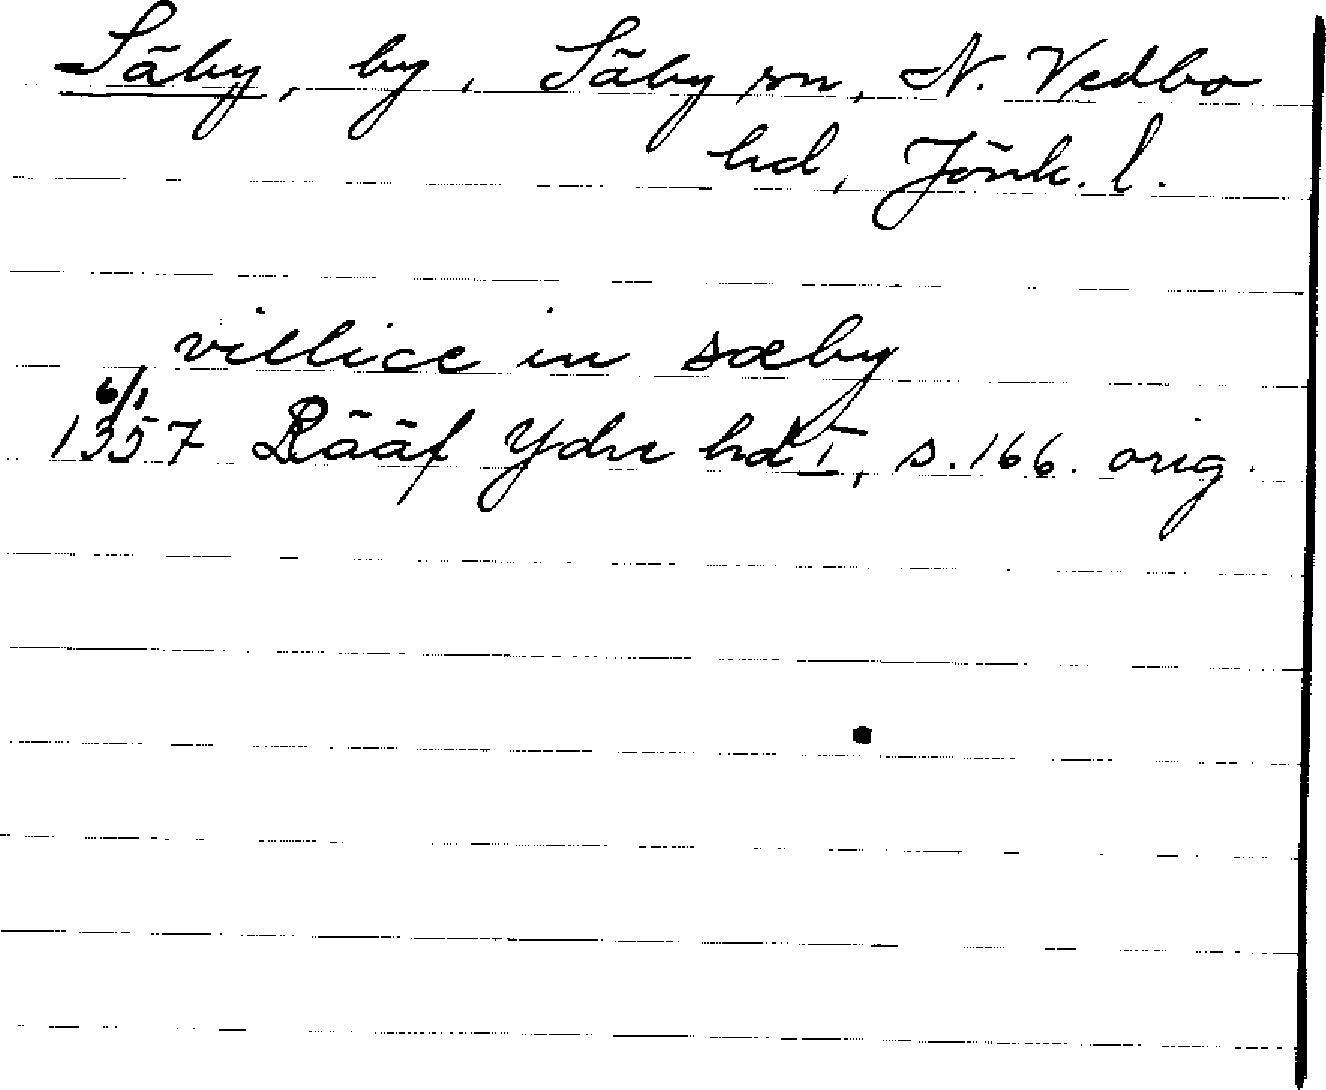 Säby, by, Säby sn, N. Vedbo
hd, Jönk. l.
villice in sæby
6/1
1357 Rääf Ydre hd I, s. 166. orig.